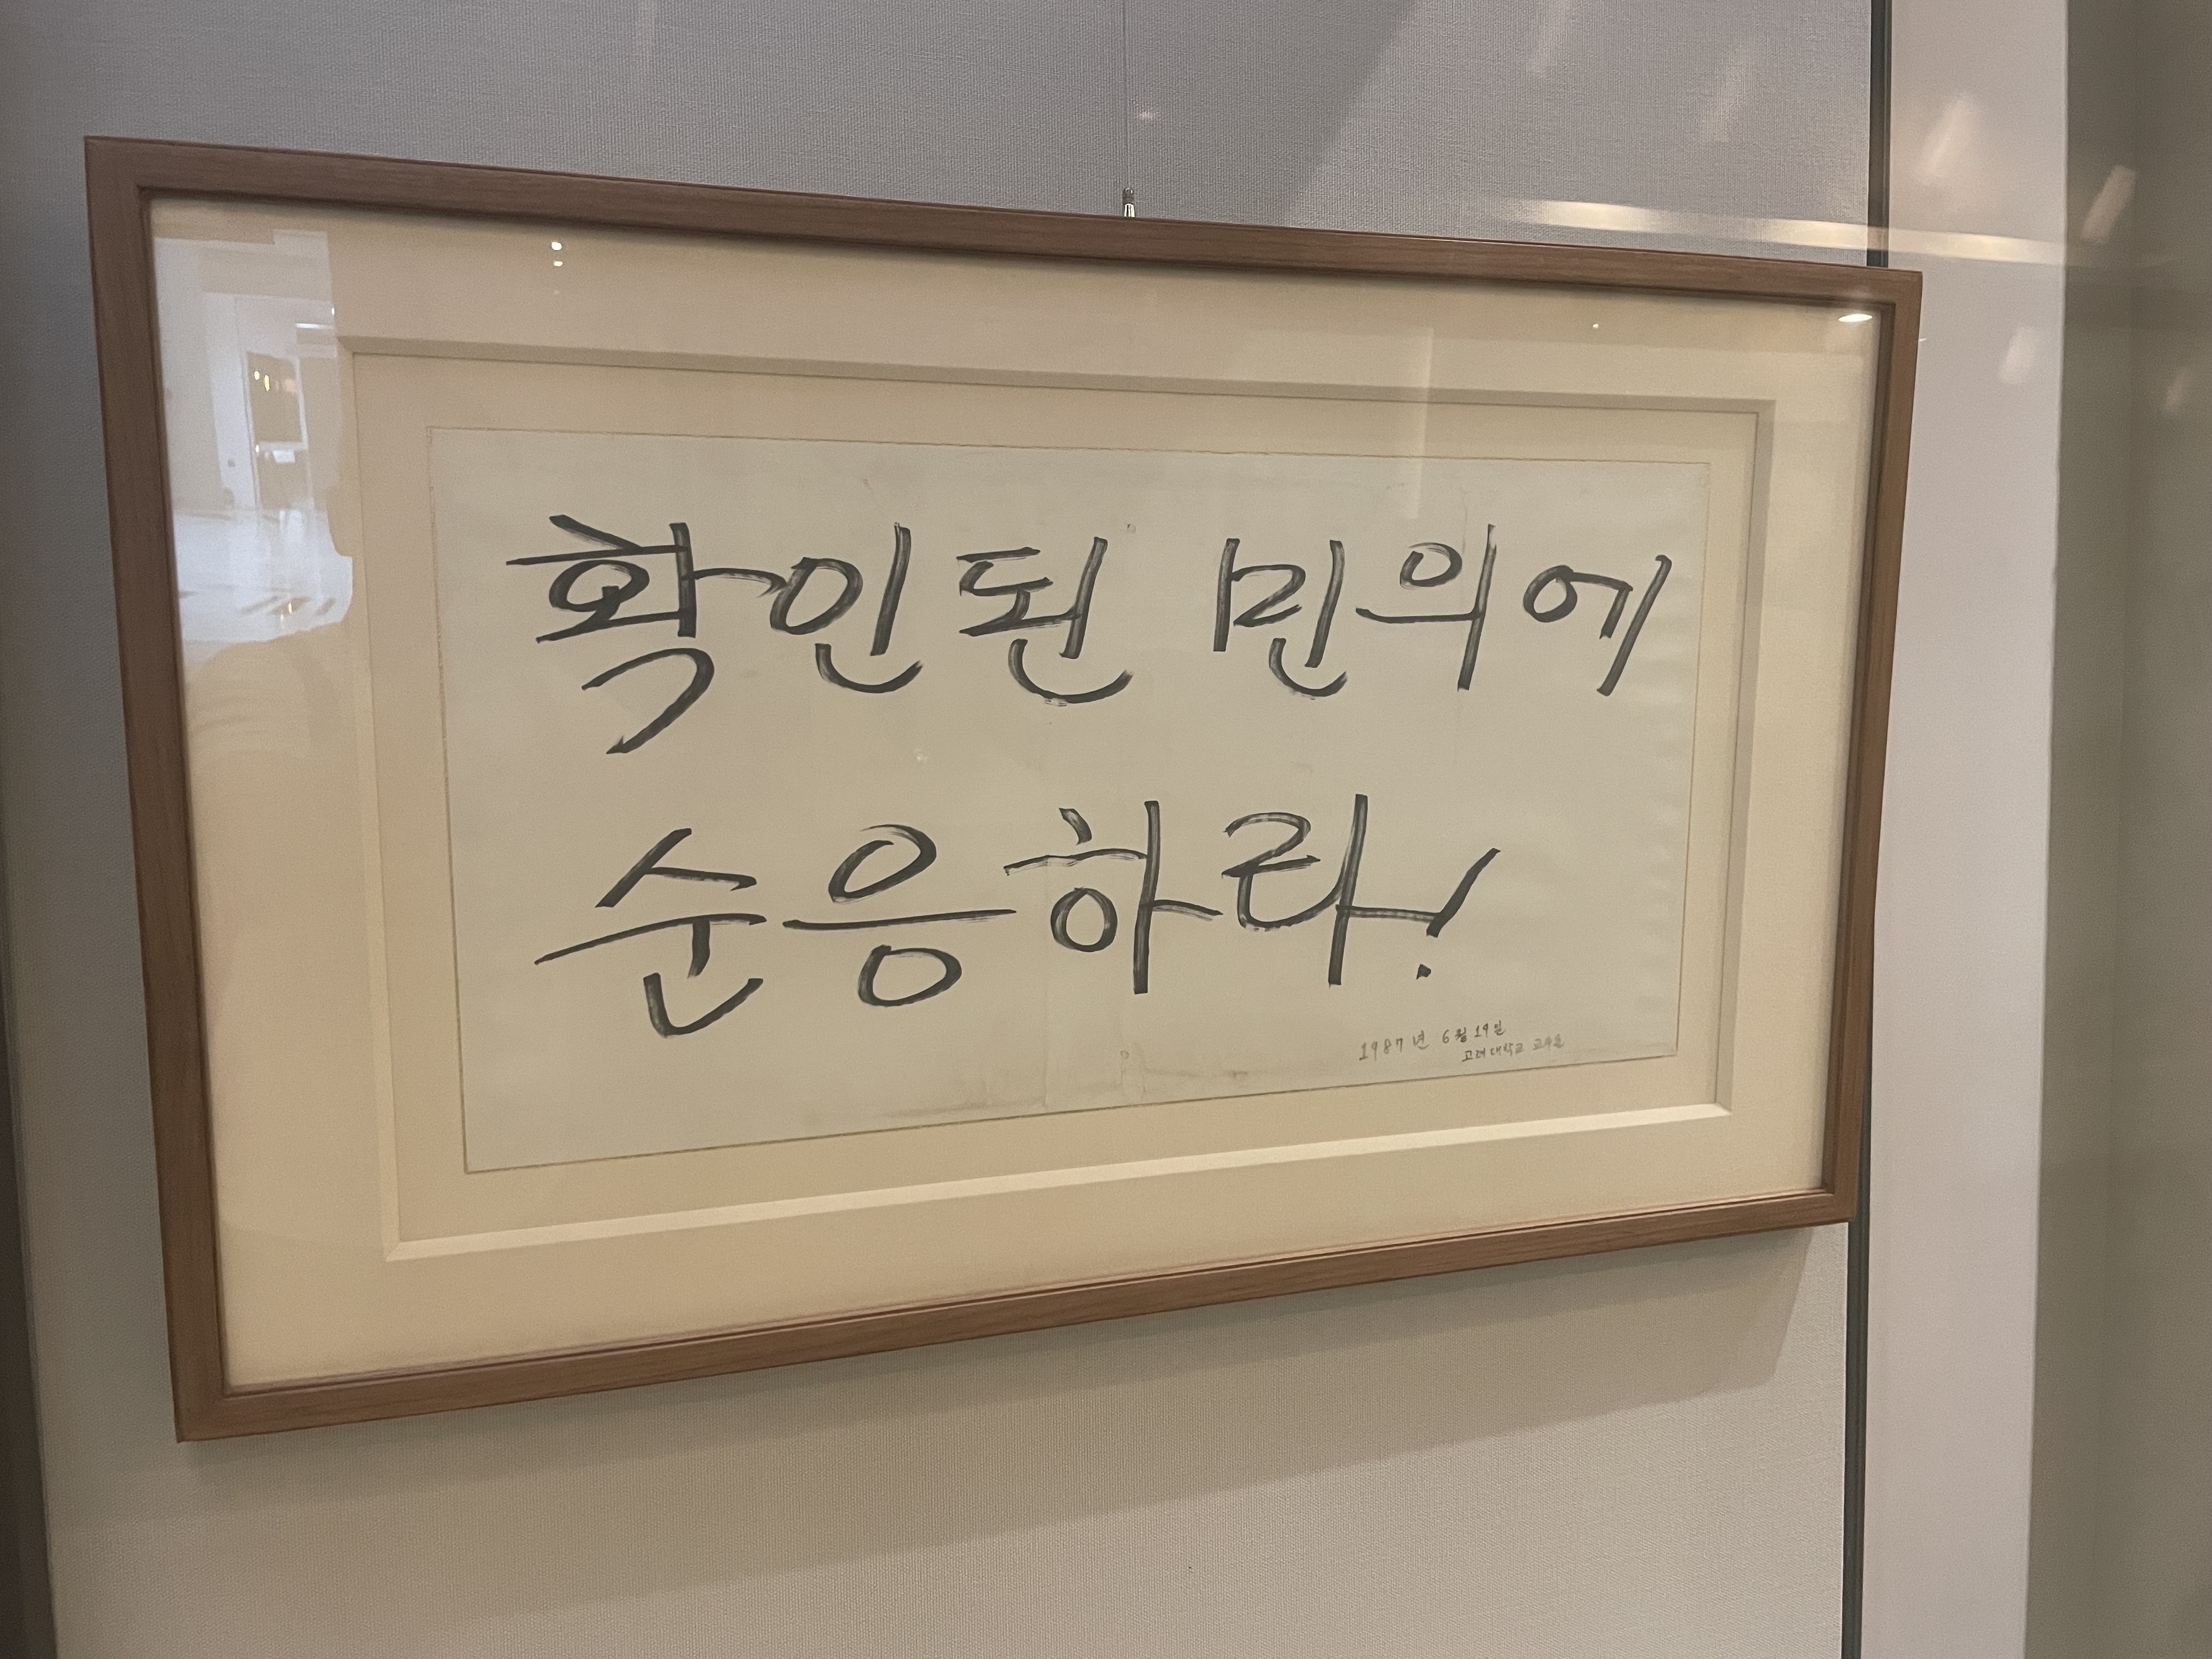 확인된 민의에
순응하라!
1987년 6월 19일
고려대학교 교수들